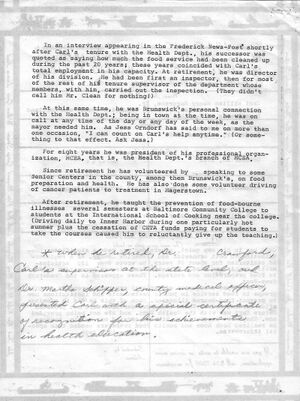 In an interview appearing in the Frederick News-Post shortly
after Carl's tenure with the Health Dept., his successor was
quoted as saying how much the food service had been cleaned up
during the past 20 years; these years coincided with Carl's
total employment in his capacity. At retirement, he was director
of his division. He had been first an inspector, then for most
of the rest of his tenure supervisor of the department whose
members, with him, carried out the inspection. (They didn't
call him Mr. Clean for nothing!)
At this same time, he was Brunswick's personal connection
with the Health Dept.; being in town at the time, he was on
call at any time of the day or any day of the week, as the
mayor needed him. As Jess Orndorf has said to me on more than
one occasion, "I can count on Carl's help anytime." (Or some-
thing to that effect. Ask Jess.)
For eight years he was president of his professional organ-
ization, MCHA, that is, the Health Dept.'s branch of MCSA.
Since retirement he has volunteered by speaking to some
Senior Centers in the county, among them Brunswick's, on food
preparation and health. He has also done some volunteer driving
of cancer patients to treatment in Hagerstown.
After retirement, he taught the prevention of food-bourne
illnesses several semesters at Baltimore Community College to
students at the International School of Cooking near the college.
(Driving daily to Inner Harbor during one particularly hot
summer plus the cessation of CETA funds paying for students to
take the courses caused him to reluctantly give up the teaching.)
* When he retired, Dr. Crawford,
Carl's supervisor at the state level, and
Dr. Martha Schipper, county medical officer,
presented Carl with a special certificate
of recognition for his achievements
in health education.